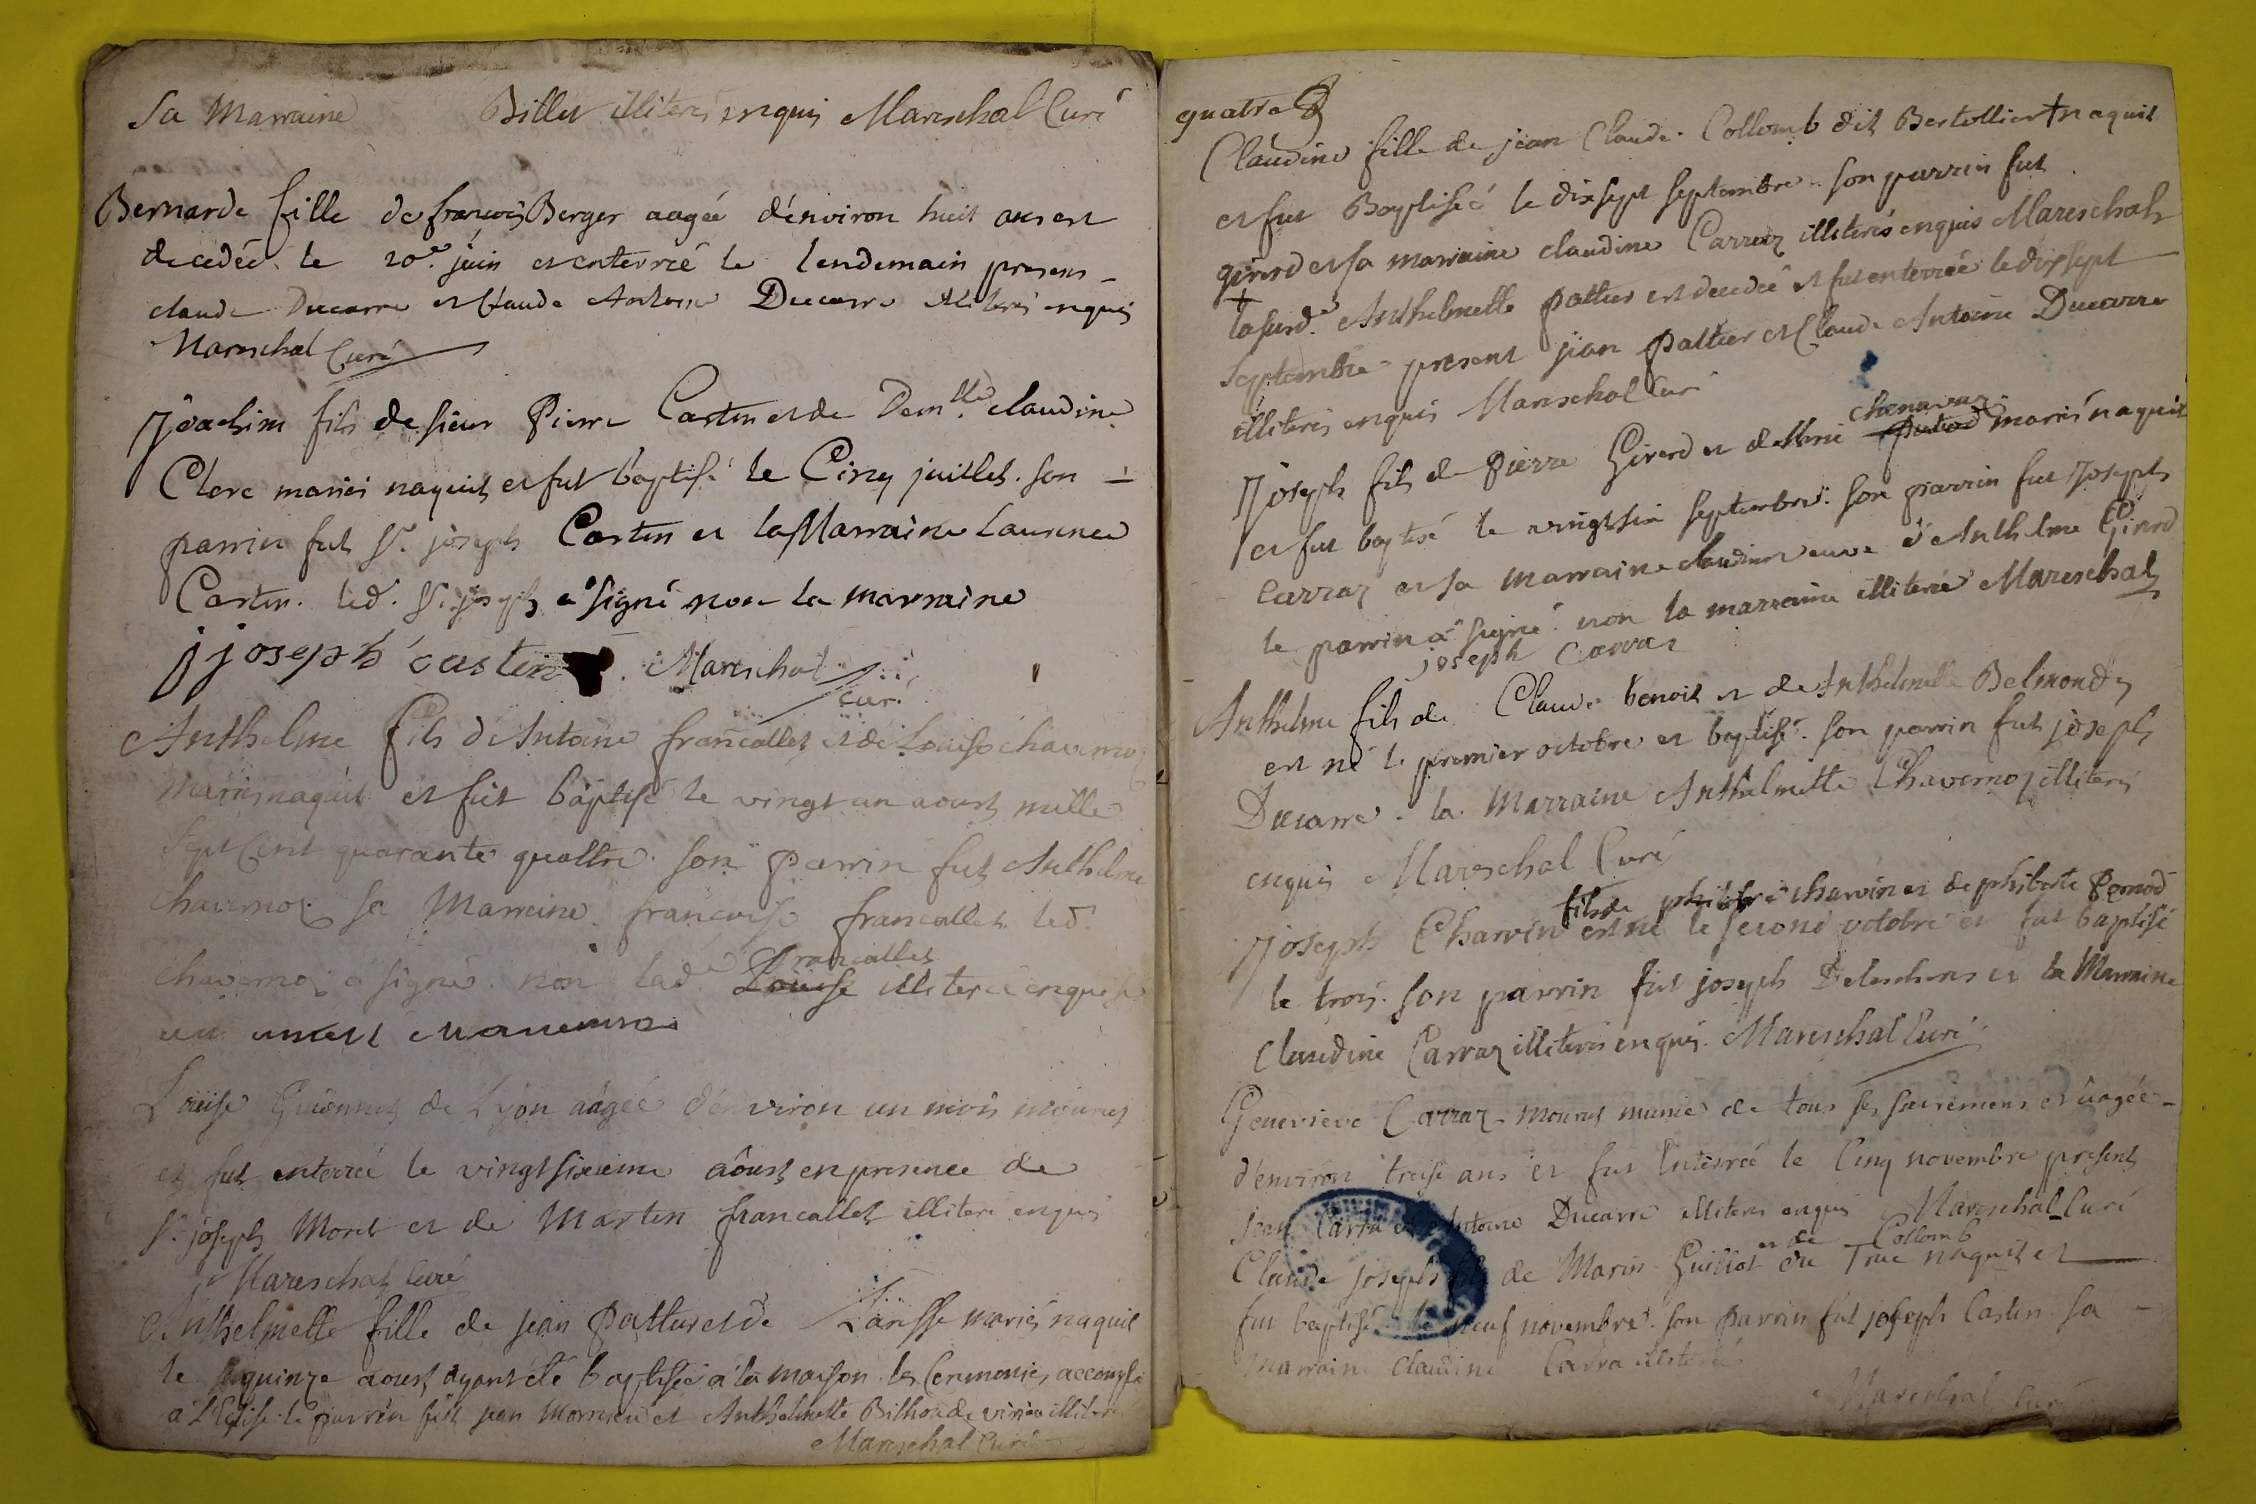 Sa Marraine Billet illiterés enquis Mareschal Curé
Bernarde fille de françois Berger aagée d'environ huit ans est
decedée le 20e. juin et enterrée le lendemain presens
claude Ducarre et Claude Antoine Ducarre illiterés enquis
Mareschal Curé
Joachim fils de sieur Pierre Castin et de Demlle. claudine
Clerc mariés naquit et fut baptisé le Cinq juillet. son
parrin fut Sr. joseph Castin et la Marraine Laurence
Castin. led. Sr. joseph a signé non la marraine
j joseph castin Mareschal
curé
Anthelme fils d'Antoine francallet et de Louise chavernoz
mariés naquit et fut baptisé le vingt un aoust mille
sept Cent quarante quattre. son parrin fut Anthelme
chavernoz sa Marraine francoise francallet. led.
francallet
chavernoz a signé. non lad. Louise illiterée enquise
Louise Guionnet de Lyon aagée d'environ un mois mourut
et fut enterrée le vingt sixieme aôust en presence de
Sr. joseph Moret et de Martin francallet illiteré enquis
Mareschal Curé
Anthelmette fille de jean Pattur et de mariés naquit
le quinze aoust ayant été baptisée a la maison les Ceremonies accomplies
a L'Eglise. le parrin fut jean et Anthelmette illiterés
Mareschal Curé
quatre
Claudine fille de jean Claude Collomb dit Bertollier + naquit
et fut Baptisée le dix sept septembre. son parrin fut
girerd et sa marraine claudine Carraz illiterés enquis Mareschal
+
la susd. Anthelmette pattur est decedée et fut enterrée le dix sept
septembre present jean pattur et Claude Antoine Ducarre
illiterés enquis Mareschal Curé
chenavaz
Joseph fils de Pierre Girerd et de mariés naquit
et fut baptisé le vingt six septembre. son parrin fut Joseph
Carraz et sa marraine claudine veuve d'Anthelme Girerd
le parrin a signé non la marraine illiterée Mareschal
joseph carraz
Anthelme fils de Claude benoit et de Anthelmette Belmond
est né le premier octobre et baptisé. son parrin fut joseph
Ducarre. la Marraine Anthelmette Chavernoz illiterés
enquis Mareschal Curé
fils de charvin et de philiberte
Joseph Charvin est né le second octobre et fut baptisé
le trois. son parrin fut joseph Deleschens et la Marraine
Claudine Carraz illiterés enquis. Mareschal Curé
Genevieve Carraz mourut munie de tous ses sacremens et aagée
d'environ treise ans et fut Enterrée le Cinq novembre present
Jean Carra et Antoine Ducarre illiterés enquis Mareschal Curé
et de Collomb
Claude joseph fils de Marin Guillot du Truc naquit et
fut baptisé le neuf novembre. son parrin fut joseph Castin sa
marraine claudine Carra illiterés
Mareschal Curé